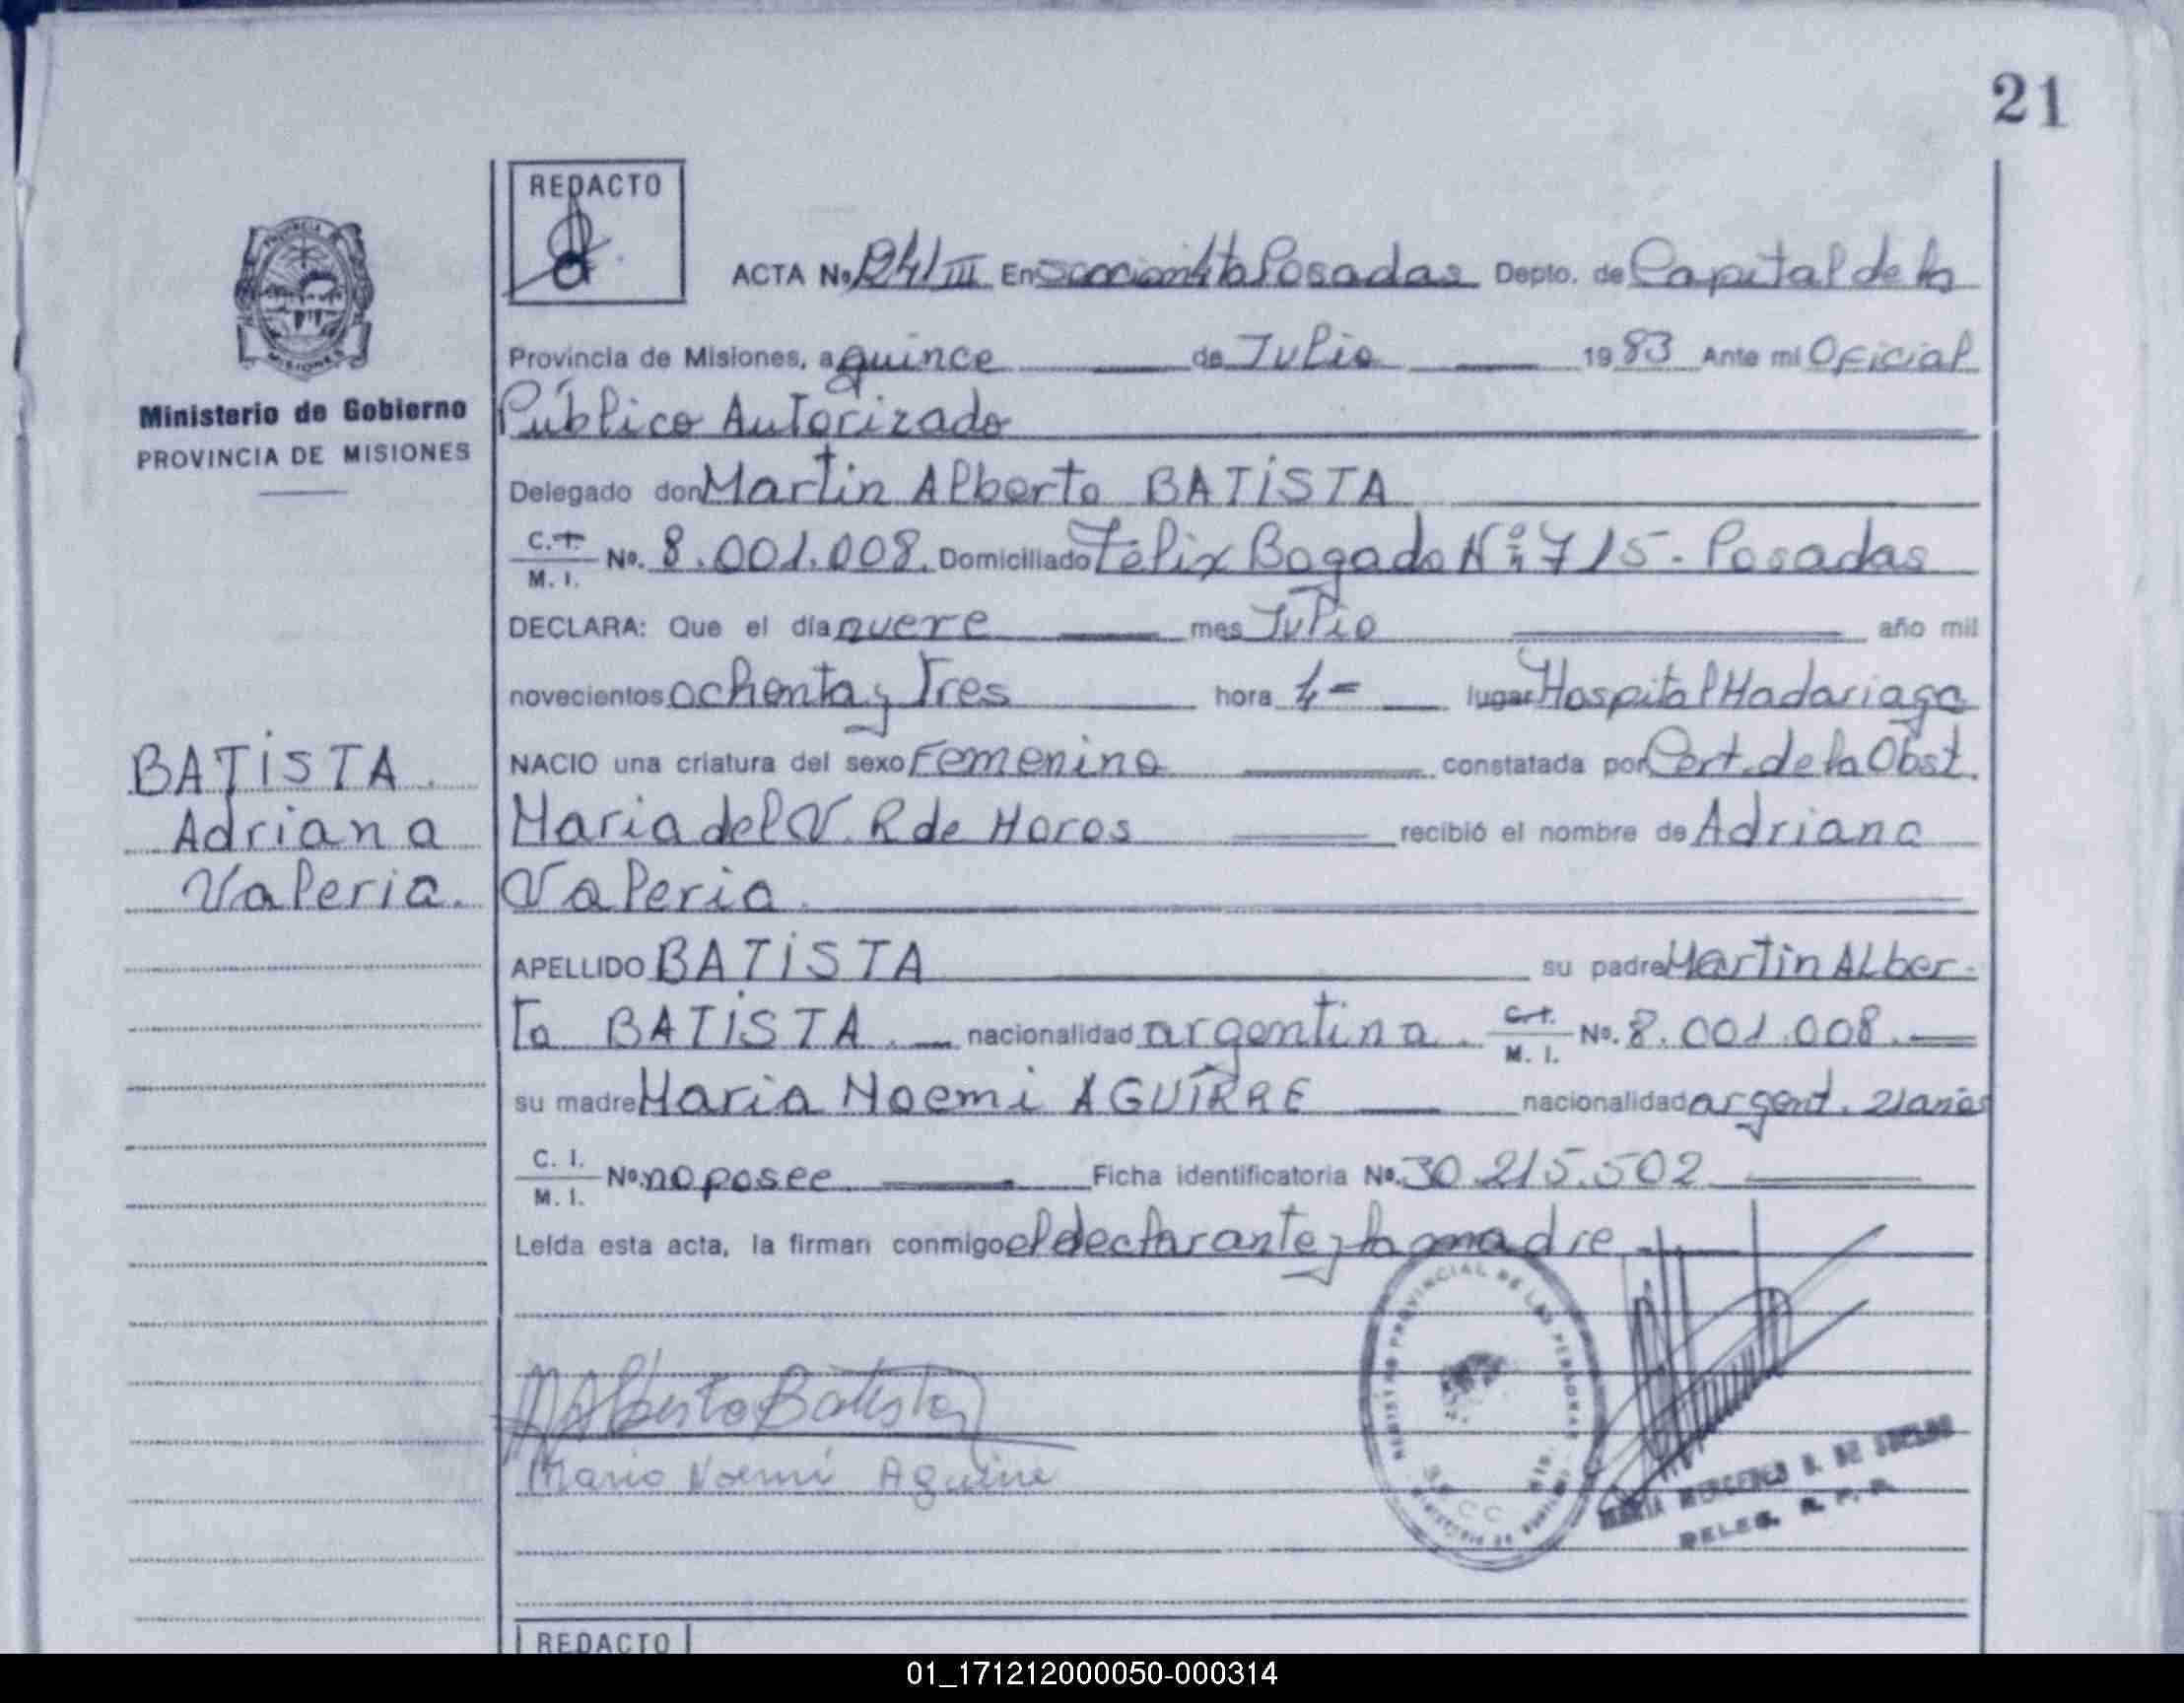 21
REDACTO
ACTA No. 241/III En Sección 4ta Posadas Depto. de Capital de la
Provincia de Misiones, a quince de Julio 1983 Ante mi Oficial
Público Autorizado
Delegado don Martin Alberto BATISTA
C.I. M. I. No. 8.001.008. Domiciliado Félix Bogado Nº 715 - Posadas
DECLARA: Que el día nueve mes Julio año mil
novecientos ochenta y Tres hora 4= lugar Hospital Madariaga
NACIO una criatura del sexo Femenino constatada por Cert. de la Obst.
Maria del V. R de Moros recibió el nombre de Adriana
Valeria.
APELLIDO BATISTA su padre Martin ALber-
To BATISTA. nacionalidad argentina. C.I. M. I. No. 8.001.008.
su madre Maria Noemi AGUIRRE nacionalidad argent. 21 años
C. I. M. I. No. no posee Ficha identificatoria No. 30.215.502
Leída esta acta, la firman conmigo el declarante y la madre
Ministerio de Gobierno
PROVINCIA DE MISIONES
BATISTA.
Adriana
Valeria.
M Alberto Batista
Maria Noemi Aguirre
REGISTRO PROVINCIAL DE LAS PERSONAS
DELEG. R. P. P.
REDACTO
01_171212000050-000314